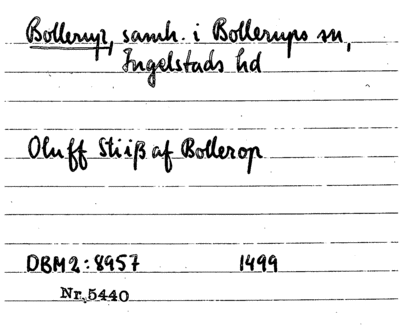 Bollerup, samh. i Bollerups sn,
Ingelstads hd
Oluff Stiiß af Bollerop
DBM2:8957 1499
Nr. 5440